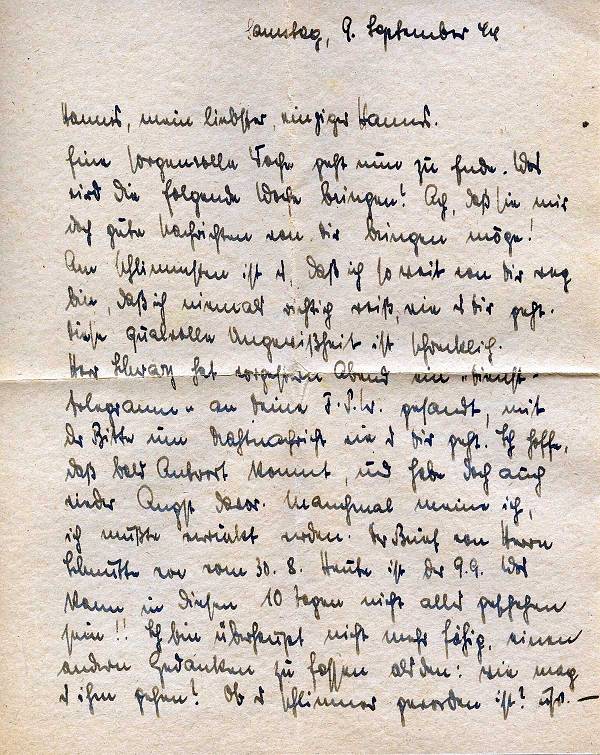 Sonntag, 9. September 44
Hannes, mein liebster, einziger Hannes.
Eine sorgenvolle Woche geht nun zu Ende. Was
wird die folgende Woche bringen! Ach, daß sie mir
doch gute Nachrichten von dir bringen möge!
Am schlimmsten ist es, daß ich so weit von dir weg
bin, daß ich niemals richtig weiß, wie es dir geht.
Diese qualvolle Ungewißheit ist schrecklich.
Herr hat vorgestern Abend ein „Dienst-
telegramm“ an deine gesandt, mit
der Bitte um Drahtnachricht wie es dir geht. Ich hoffe,
daß bald Antwort kommt, und habe doch auch
wieder Angst davor. Manchmal meine ich,
ich müßte verrückt werden. Der Brief von Herrn
war vom 30. 8. Heute ist der 9.9. Was
kann in diesen 10 Tagen nicht alles geschehen
sein!! Ich bin überhaupt nicht mehr fähig, einen
andern Gedanken zu fassen als den: wie mag
es ihm gehen! Ob es schlimmer geworden ist? usw. —